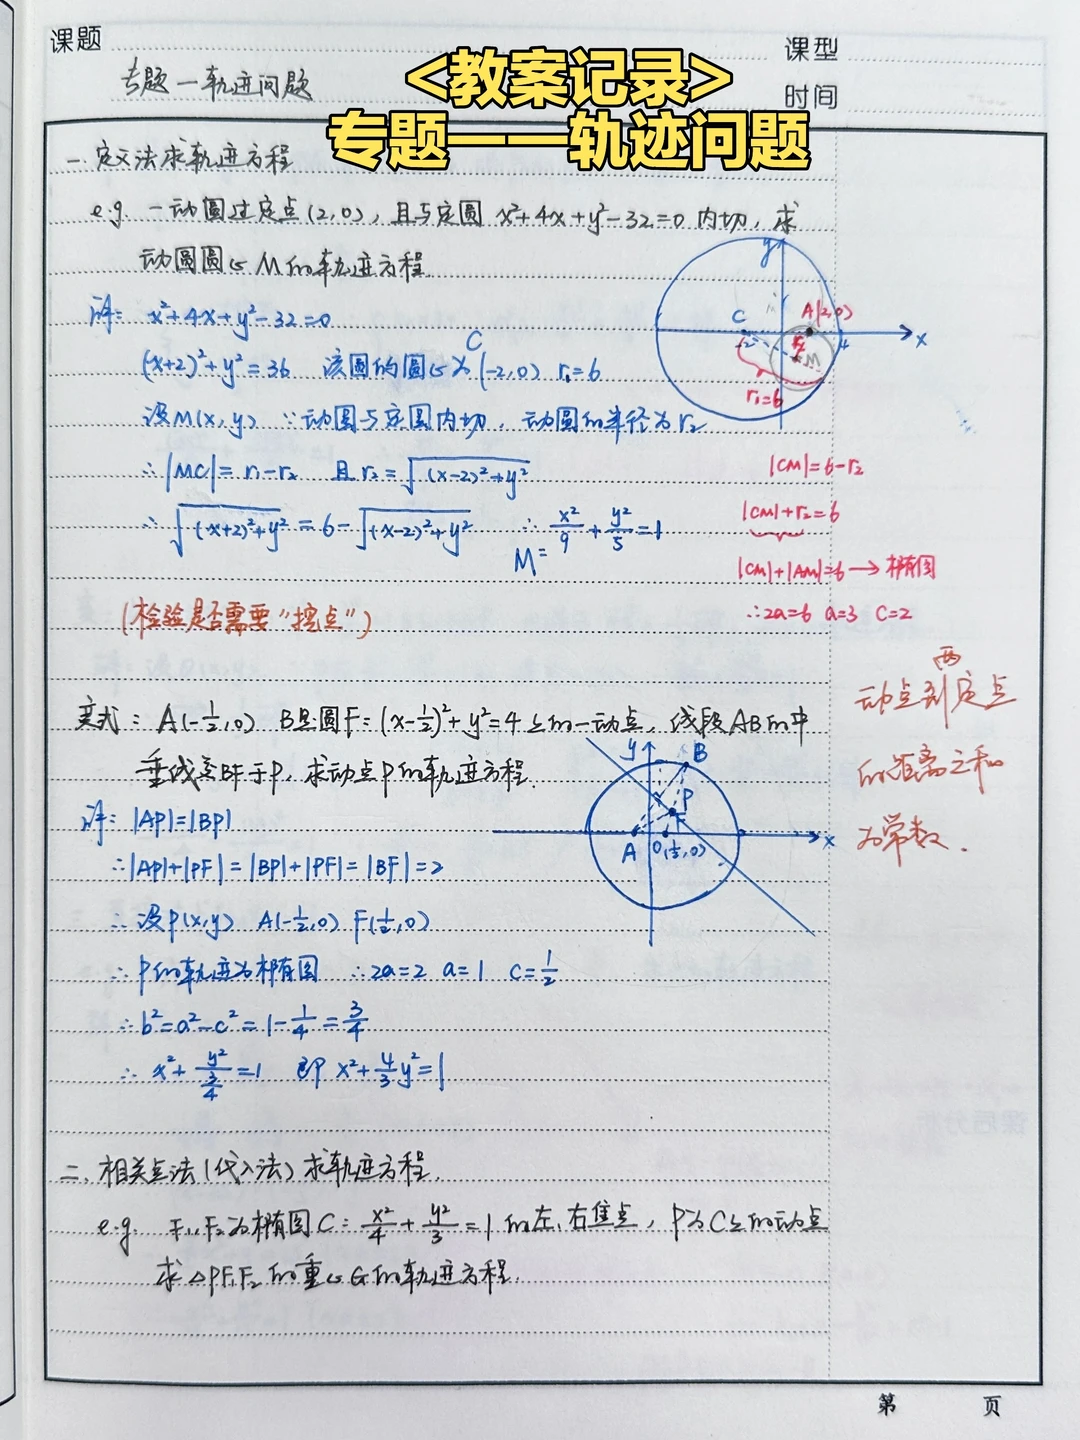 课题
课型
<教案记录>
专题一轨迹问题
时间
专题——轨迹问题
一.定义法求轨迹方程
e.g. 一动圆过定点(2,0),且与定圆 x²+4x+y²-32=0 内切,求
动圆圆心M的轨迹方程.
y
C A(2,0)
-2 4 x
M
r₁=6
解: x²+4x+y²-32=0
C
(x+2)²+y²=36 该圆的圆心为(-2,0) r₁=6
设M(x,y) ∵动圆与定圆内切,动圆的半径为r₂
∴|MC|=r₁-r₂ 且r₂=√(x-2)²+y²
∴√(x+2)²+y²=6-√(x-2)²+y² ∴ x²/9+y²/5=1
M=
|CM|=6-r₂
|CM|+r₂=6
|CM|+|AM|=6→椭圆
∴2a=6 a=3 c=2
(检验是否需要"挖点")
两
动点到定点
的距离之和
为常数.
变式: A(-1/2,0) B是圆F=(x-1/2)²+y²=4上的一动点,线段AB的中
垂线交BF于P,求动点P的轨迹方程.
y B
P
F
A O (1/2,0) x
解: |AP|=|BP|
∴|AP|+|PF|=|BP|+|PF|=|BF|=2
∴设P(x,y) A(-1/2,0) F(1/2,0)
∴P的轨迹为椭圆 ∴2a=2 a=1 c=1/2
∴b²=a²-c²=1-1/4=3/4
∴x²+y²/(3/4)=1 即 x²+4/3y²=1
二.相关点法(代入法)求轨迹方程.
e.g. F₁,F₂为椭圆C: x²/4+y²/3=1 的左、右焦点,P为C上的动点
求△PF₁F₂的重心G的轨迹方程.
第 页